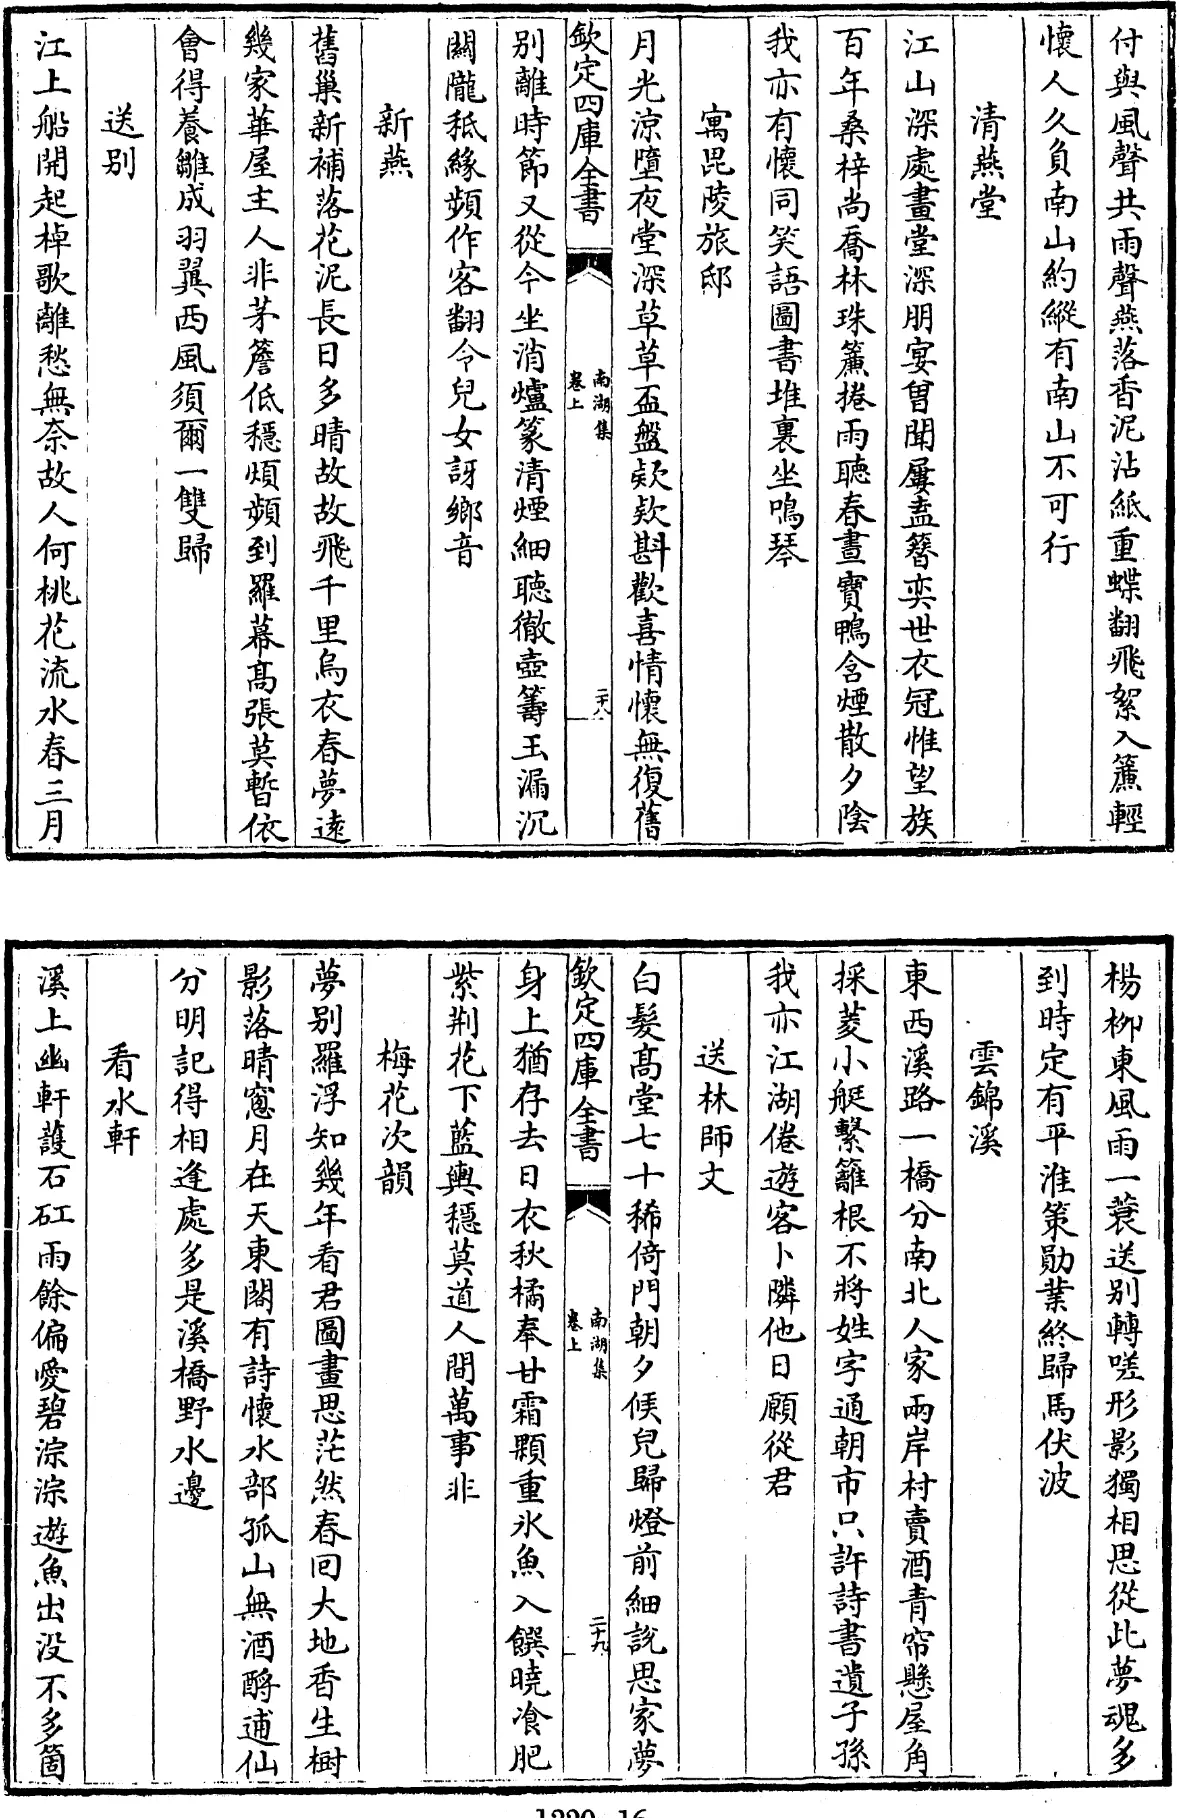 付與風聲共雨聲燕落香泥沾紙重蝶翻飛絮入簾輕
懷人久負南山約縱有南山不可行
清燕堂
江山深處畫堂深朋宴曾聞屢盍簪奕世衣冠惟望族
百年桑梓尚喬林珠簾捲雨聽春晝寶鴨含煙散夕陰
我亦有懷同笑語圖書堆裏坐鳴琴
寓毘陵旅邸
月光涼墮夜堂深草草盃盤欵欵斟歡喜情懷無復舊
欽定四庫全書
南湖集
卷上
二十八
別離時節又從今坐消爐篆清煙細聽徹壺籌玉漏沉
關隴秪緣頻作客翻令兒女訝鄉音
新燕
舊巢新補落花泥長日多晴故故飛千里烏衣春夢遠
幾家華屋主人非茅簷低穩煩頻到羅幕髙張莫暫依
會得養雛成羽翼西風須爾一雙歸
送別
江上船開起棹歌離愁無奈故人何桃花流水春三月
楊柳東風雨一蓑送別轉嗟形影獨相思從此夢魂多
到時定有平淮策勛業終歸馬伏波
雲錦溪
東西溪路一橋分南北人家兩岸村賣酒青帘懸屋角
採菱小艇繫籬根不將姓字通朝市只許詩書遺子孫
我亦江湖倦遊客卜隣他日願從君
送林師文
白髮髙堂七十稀倚門朝夕候兒歸燈前細說思家夢
欽定四庫全書
南湖集
卷上
二十九
身上猶存去日衣秋橘奉甘霜顆重氷魚入饌曉飡肥
紫荆花下藍輿穩莫道人間萬事非
梅花次韻
夢別羅浮知幾年看君圖畫思茫然春回大地香生樹
影落晴窻月在天東閣有詩懷水部孤山無酒酹逋仙
分明記得相逢處多是溪橋野水邊
看水軒
溪上幽軒護石矼雨餘偏愛碧淙淙遊魚出没不多箇